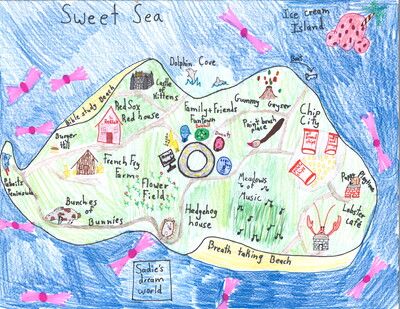 Sweet Sea
Ice cream
Island
Dolphin Cove
Castle
of
Kittens
Bible study Beach
Red Sox
Red house
Family + Friends
Funtown
Gummy Geyser
Paint brush
place
Chip
City
Burger
Hill
French Fry
Farm
Flower
Field
Meadows
of
Music
Bunches
of
Bunnies
Hedgehog
house
Lobster
café
Breath taking Beach
Sadie's
dream
world